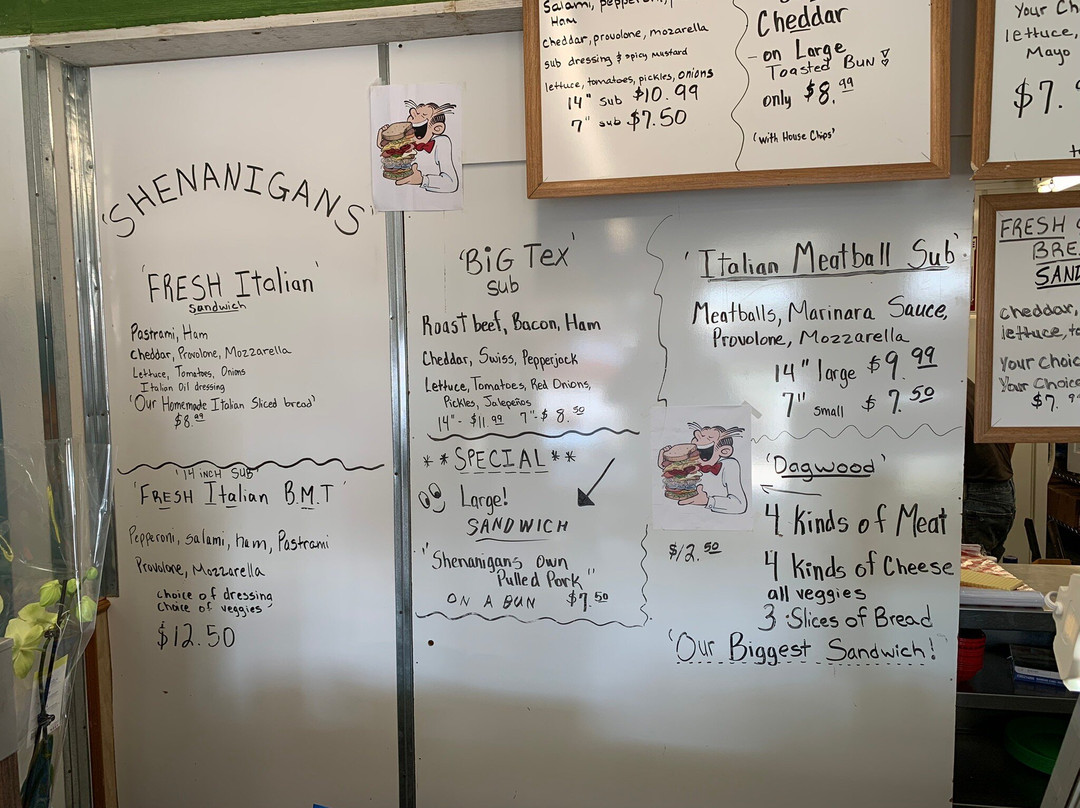 'SHENANIGANS'
'FRESH Italian'
Sandwich
Pastrami, Ham
Cheddar, Provolone, Mozzarella
Lettuce, Tomatoes, Onions
Italian Oil dressing
'Our Homemade Italian Sliced bread'
$8.99
'14 inch SUB'
'FRESH Italian B.M.T'
Pepperoni, Salami, Ham, Pastrami
Provolone, Mozzarella
choice of dressing
choice of veggies'
$12.50
'BiG TEX'
SUB
Roast beef, Bacon, Ham
Cheddar, Swiss, Pepperjack
Lettuce, Tomatoes, Red Onions,
Pickles, Jalepeños
14"- $11.99 7"-$ 8.50
**SPECIAL**
Large!
SANDWICH
"Shenanigans own
Pulled Pork"
ON A BUN $7.50
Salami, pepperoni,
Ham
cheddar, provolone, mozarella
sub dressing & spicy mustard
lettuce, tomatoes, pickles, onions
14" sub $10.99
7" sub $7.50
Cheddar
- on Large
Toasted Bun!
only $8.99
(with House Chips'
'Italian Meatball Sub'
Meatballs, Marinara Sauce,
Provolone, Mozzarella
14" large $9.99
7" small $7.50
'Dagwood'
4 Kinds of Meat
$12.50
4 Kinds of Cheese
all veggies
3 Slices of Bread
'Our Biggest Sandwich!
Your Ch
lettuce,
Mayo
$7.
FRESH
BRE
SAND
cheddar,
lettuce, to
Your choic
Your Choice
$7.